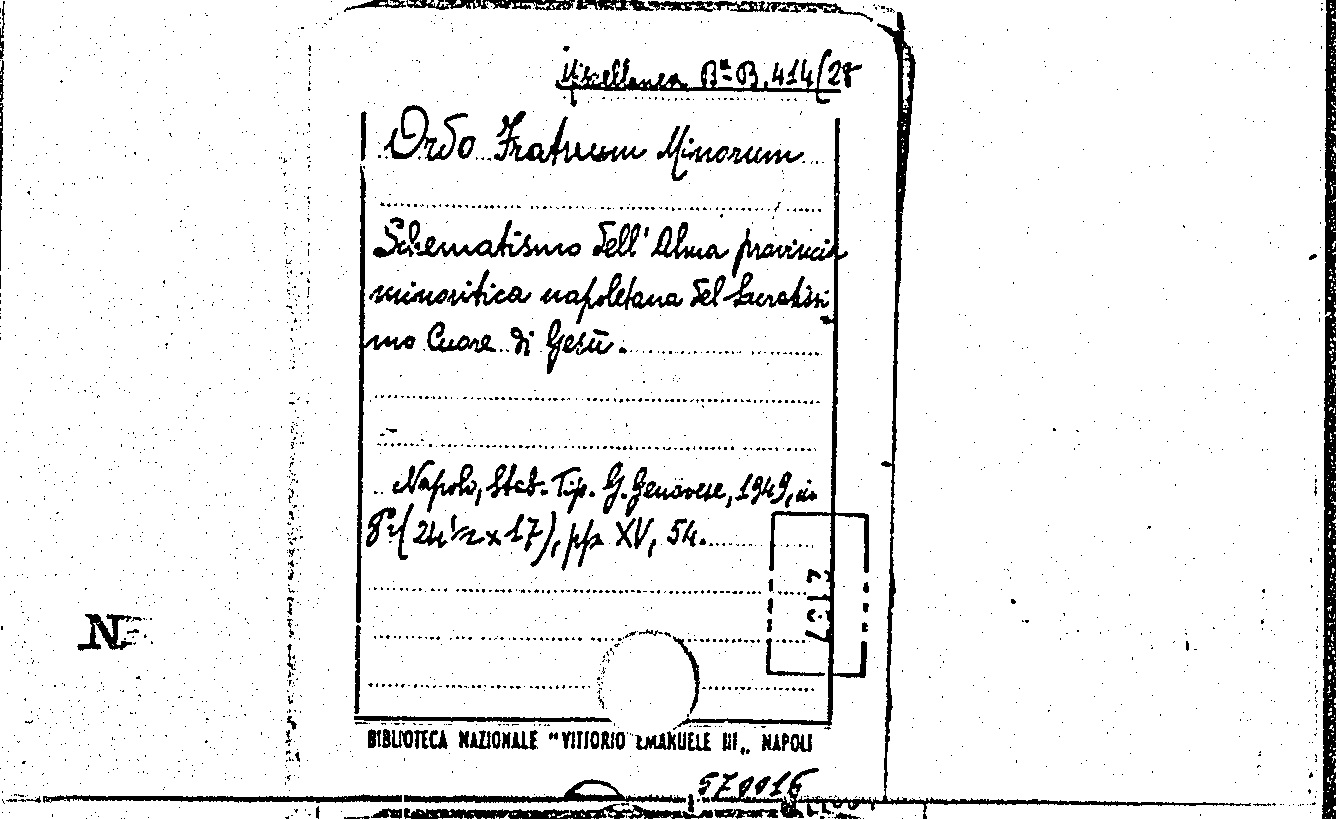 Miscellanea Bª B. 414/28
Ordo Fratrum Minorum
Schematismo dell' Alma provincia
minoritica napoletana del Sacratissi
mo Cuore di Gesù.
Napoli, Stab. Tip. G. Genovese, 1949, in
8º (24½ x 17), pp. XV, 54.
2167
N
BIBLIOTECA NAZIONALE "VITTORIO EMANUELE III„ NAPOLI
570016